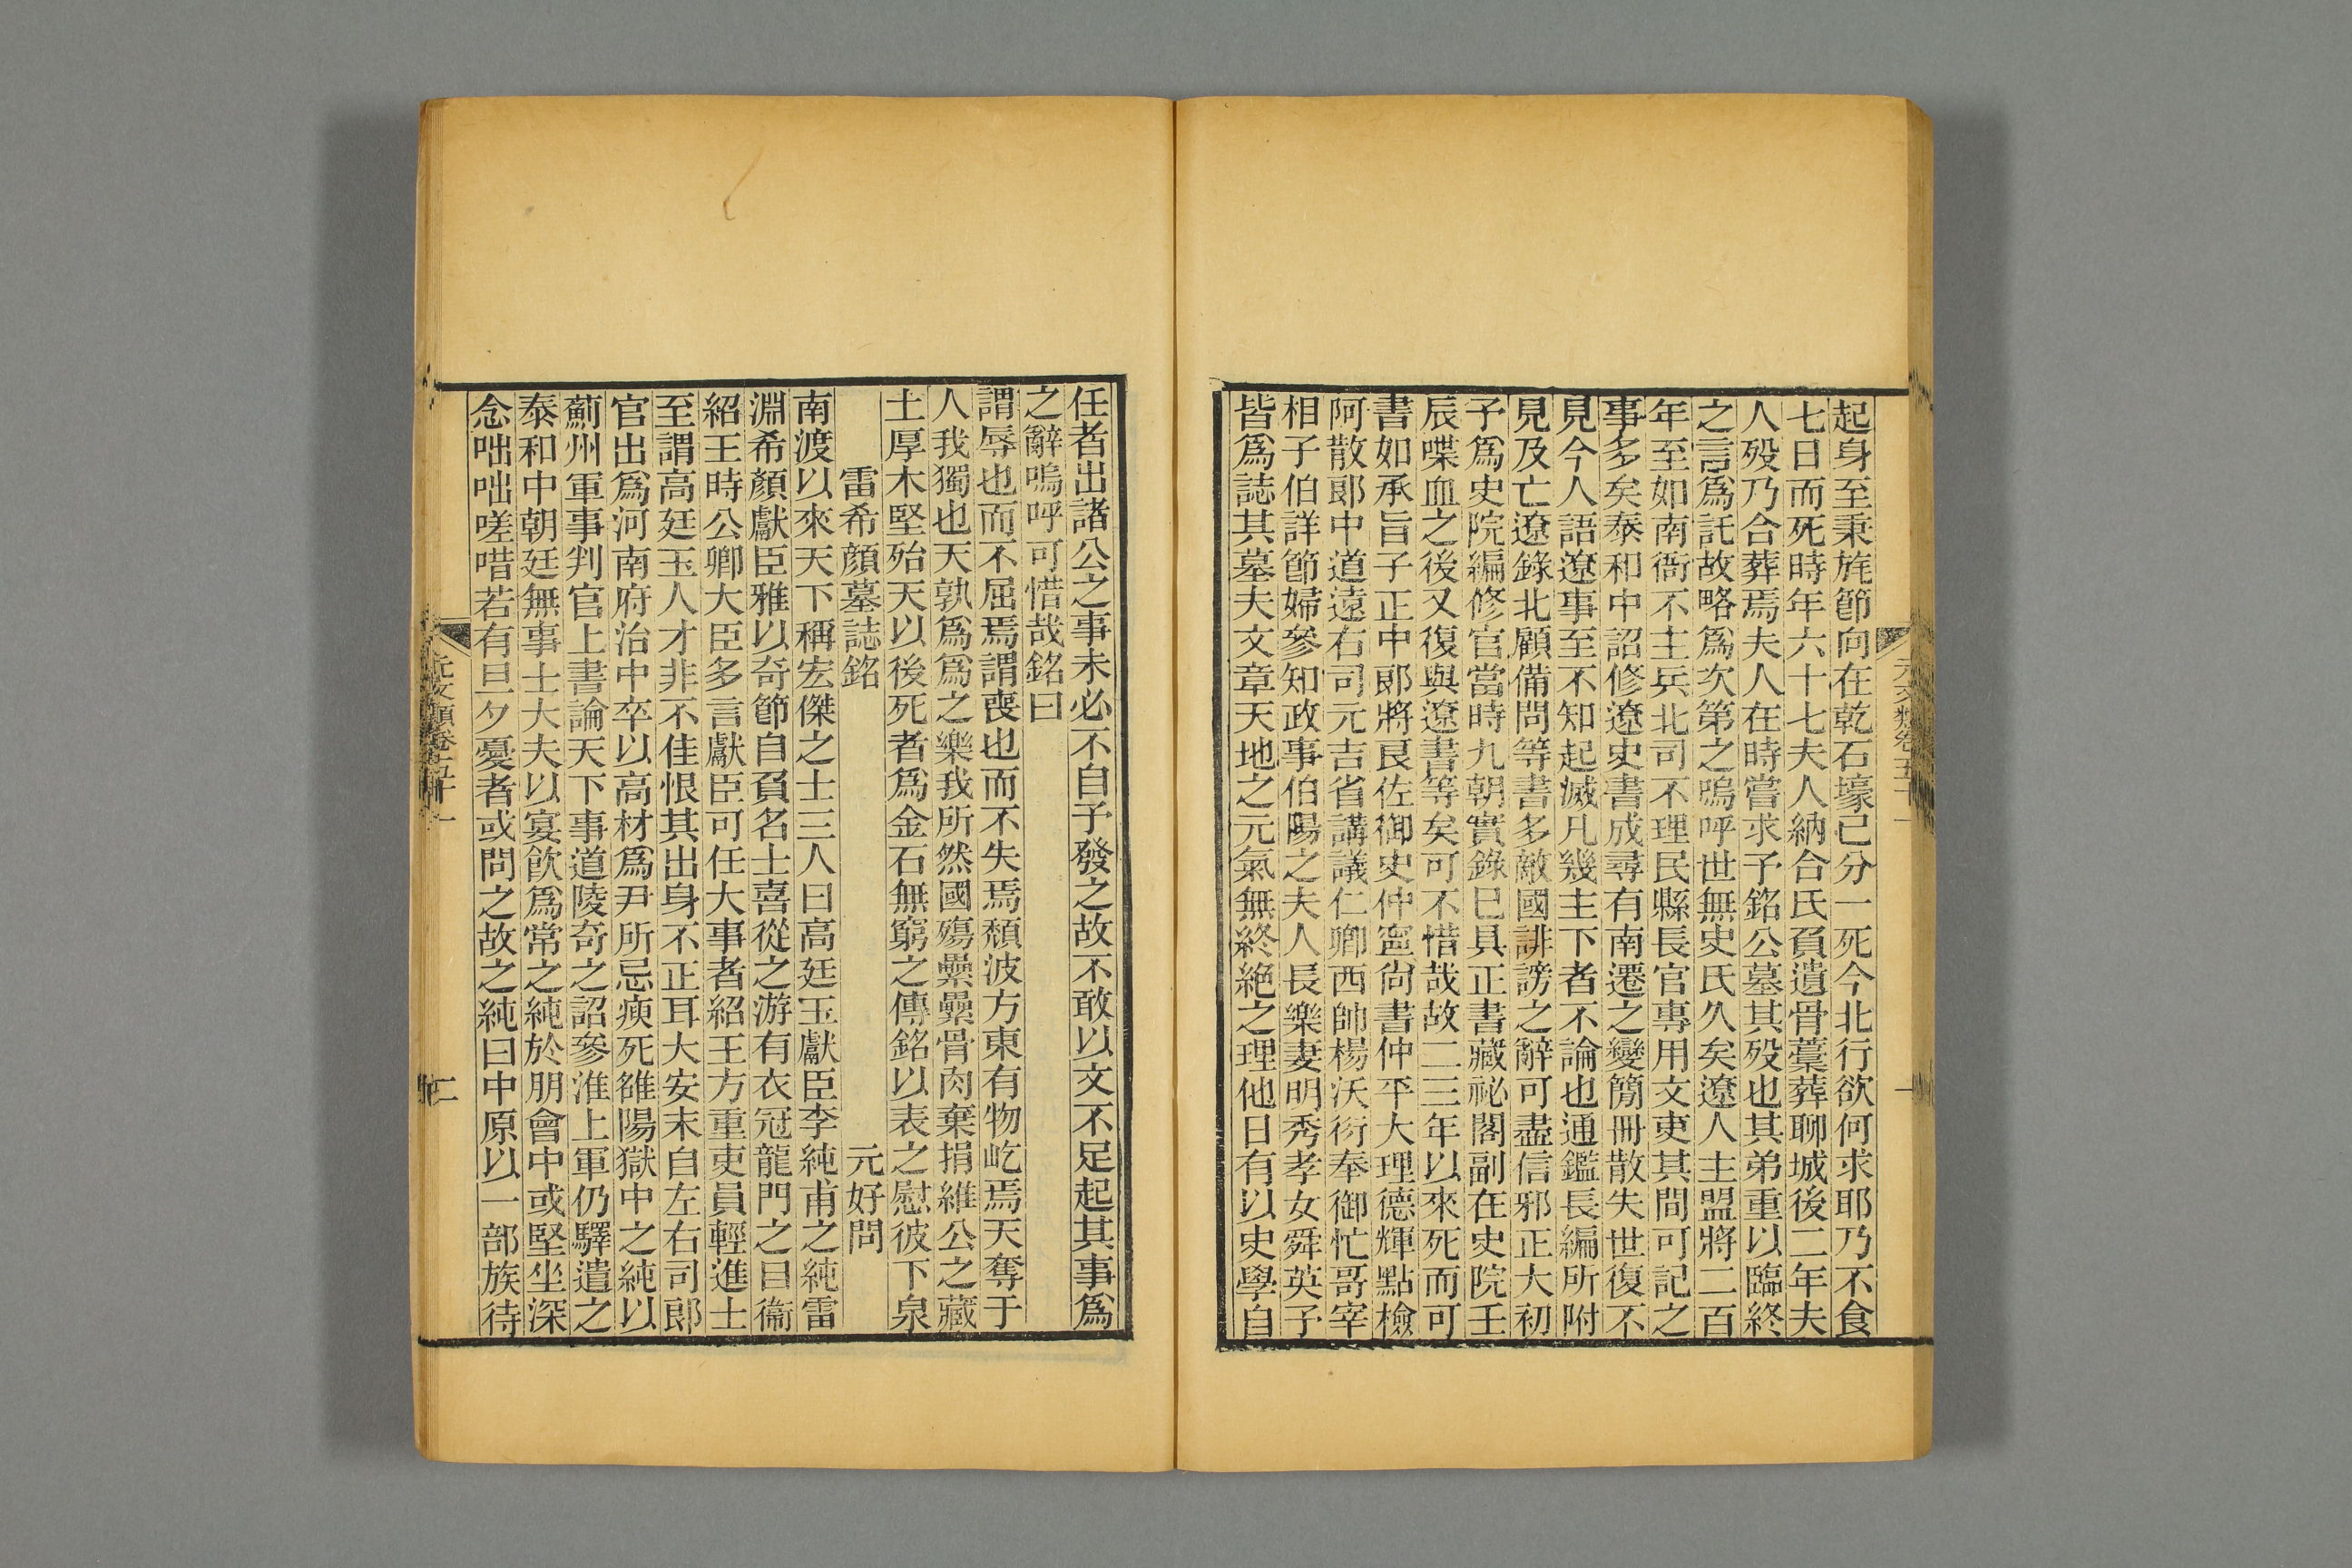 起身至秉旄節向在乾石壕已分一死今北行欲何求耶乃不食
七日而死時年六十七夫人納合氏負遺骨藁葬聊城後二年夫
人歿乃合葬焉夫人在時嘗求予銘公墓其歿也其弟重以臨終
之言爲託故略爲次第之嗚呼世無史氏久矣遼人主盟將二百
年至如南衙不主兵北司不理民縣長官專用文吏其間可記之
事多矣泰和中詔修遼史書成尋有南遷之變簡冊散失世復不
見今人語遼事至不知起滅凡幾主下者不論也通鑑長編所附
見及亡遼錄北顧備問等書多敵國誹謗之辭可盡信邪正大初
予爲史院編修官當時九朝實錄已具正書藏祕閣副在史院壬
辰喋血之後又復與遼書等矣可不惜哉故二三年以來死而可
書如承旨子正中郎將良佐御史仲寧尚書仲平大理德輝點檢
阿散郎中道遠右司元吉省講議仁卿西帥楊沃衍奉御忙哥宰
相子伯詳節婦參知政事伯陽之夫人長樂妻明秀孝女舜英予
皆爲誌其墓夫文章天地之元氣無終絕之理他日有以史學自
元文類卷五十一
任者出諸公之事未必不自予發之故不敢以文不足起其事爲
之辭嗚呼可惜哉銘曰
謂辱也而不屈焉謂喪也而不失焉頹波方東有物屹焉天奪于
人我獨也天孰爲爲之樂我所然國殤纍纍骨肉棄捐維公之藏
土厚木堅殆天以後死者爲金石無窮之傳銘以表之慰彼下泉
雷希顏墓誌銘 元好問
南渡以來天下稱宏傑之士三人曰高廷玉獻臣李純甫之純雷
淵希顏獻臣雅以奇節自負名士喜從之游有衣冠龍門之目衞
紹王時公卿大臣多言獻臣可任大事者紹王方重吏員輕進士
至謂高廷玉人才非不佳恨其出身不正耳大安末自左右司郎
官出爲河南府治中卒以高材爲尹所忌瘐死雒陽獄中之純以
薊州軍事判官上書論天下事道陵奇之詔參淮上軍仍驛遣之
泰和中朝廷無事士大夫以宴飲爲常之純於朋會中或堅坐深
念咄咄嗟唶若有旦夕憂者或問之故之純曰中原以一部族待
元文類卷五十一
二